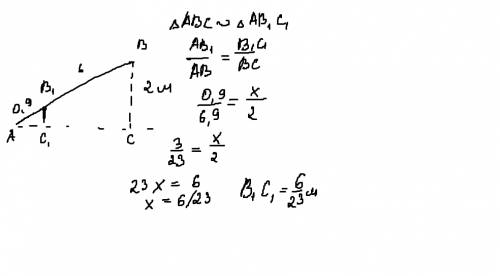 △ABC ∾ △AB₁C₁
AB₁/AB = B₁C₁/BC
0,9/6,9 = x/2
3/23 = x/2
23x = 6
x = 6/23
B₁C₁ = 6/23 м
B
6
B₁
2 м
0,9
A
C₁
C